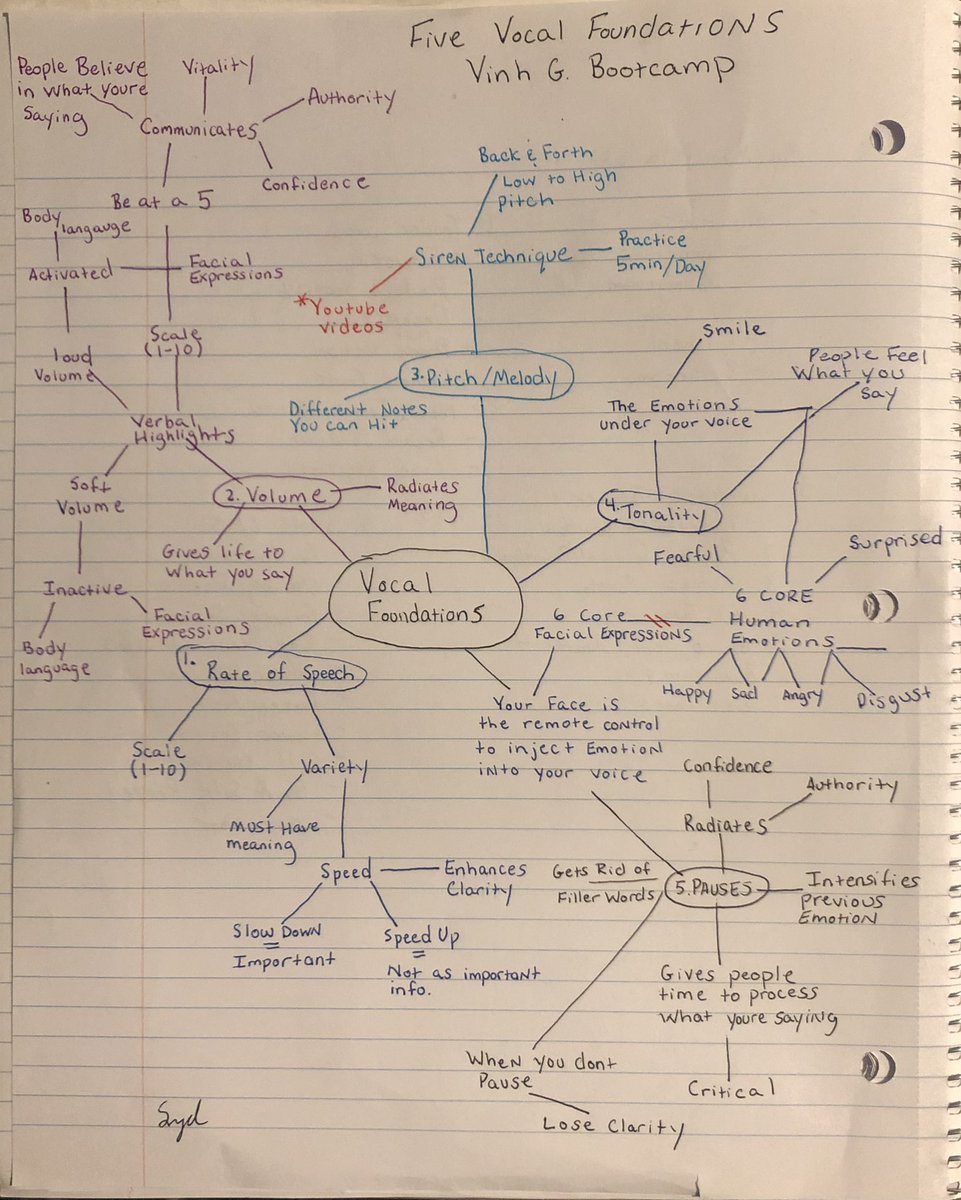 Five Vocal Foundations
Vinh G. Bootcamp
People Believe
in What youre
Saying
Vitality
Authority
Communicates
Confidence
Be at a 5
Body
langauge
Activated
Facial
Expressions
Scale
(1-10)
loud
Volume
Verbal
Highlights
Soft
Volume
Inactive
Facial
Expressions
Body
language
2. Volume
Radiates
Meaning
Gives life to
What you say
Back & Forth
Low to High
pitch
Siren Technique
Practice
5min/Day
*Youtube
videos
3. Pitch/Melody
Different Notes
You can Hit
Smile
People Feel
What you
Say
The Emotions
under your voice
4. Tonality
Fearful
Surprised
6 CORE
Human
Emotions
Happy
Sad
Angry
Disgust
Vocal
Foundations
6 Core
Facial Expressions
Your Face is
the remote control
to inject Emotion
into your voice
1. Rate of Speech
Scale
(1-10)
Variety
Must Have
meaning
Speed
Enhances
Clarity
Slow Down
=
Important
Speed Up
=
Not as important
info.
Confidence
Authority
Radiates
Gets Rid of
Filler Words
5. PAUSES
Intensifies
Previous
Emotion
Gives people
time to process
What youre saying
Critical
When you dont
Pause
Lose Clarity
Syd